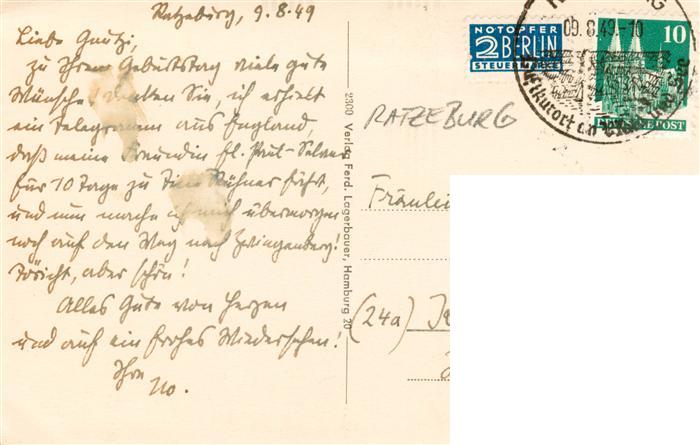 Ratzeburg, 9.8.49
Liebe Gautzi,
zu Ihrem Geburtstag viele gute
Wünsche! Sie, ich erhielt
ein Telegramm aus England,
daß meine Freundin
für 10 Tage zu fährt,
und nun mache ich mich übermorgen
noch auf den Weg nach Zwingenberg!
Töricht, aber schön!
Alles Gute von Herzen
und auf ein frohes Wiedersehen!
Ihre
No.
2300 Verlag Ferd. Lagerbauer, Hamburg 20
NOTOPFER
2 BERLIN
STEUERMARKE
09.8.49-10
Luftkurort
10
POST
RATZEBURG
Fräulei
(24a)